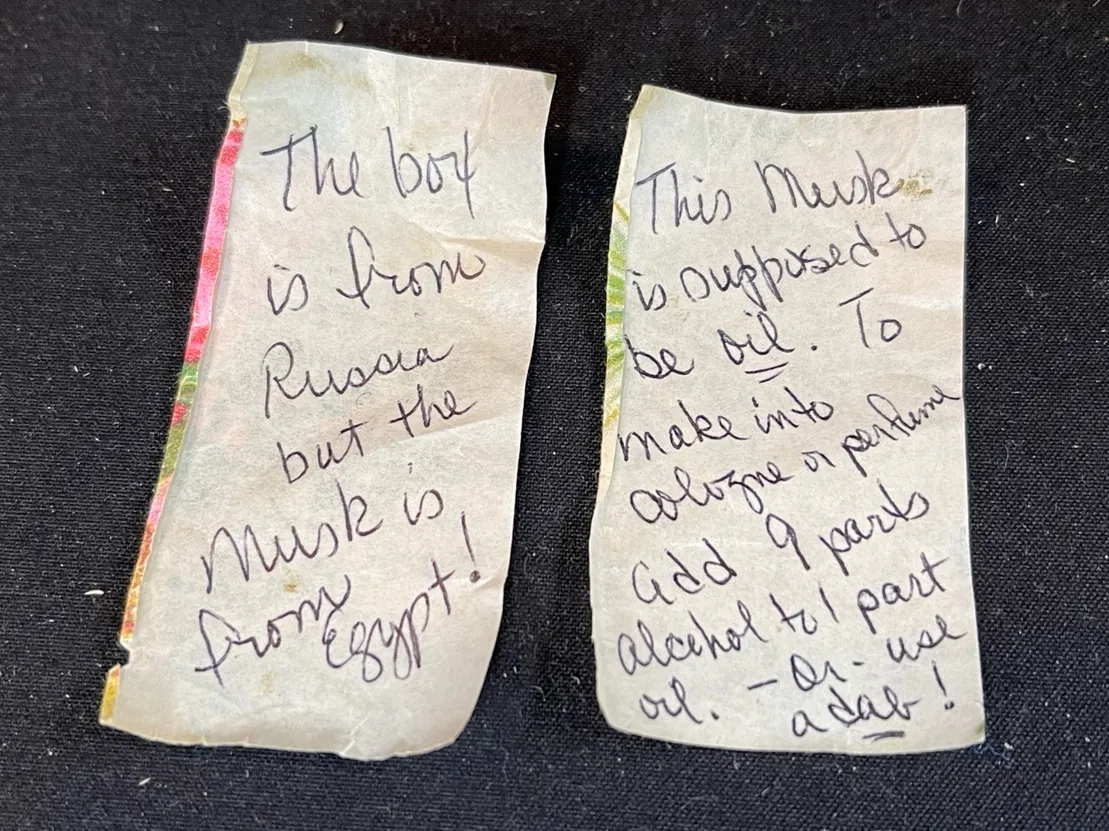 The box
is from
Russia
but the
Musk is
from
Egypt!
This Musk
is supposed to
be oil. To
make into
cologne or perfume
add 9 parts
alcohol to 1 part
oil. - Or - use
a dab!